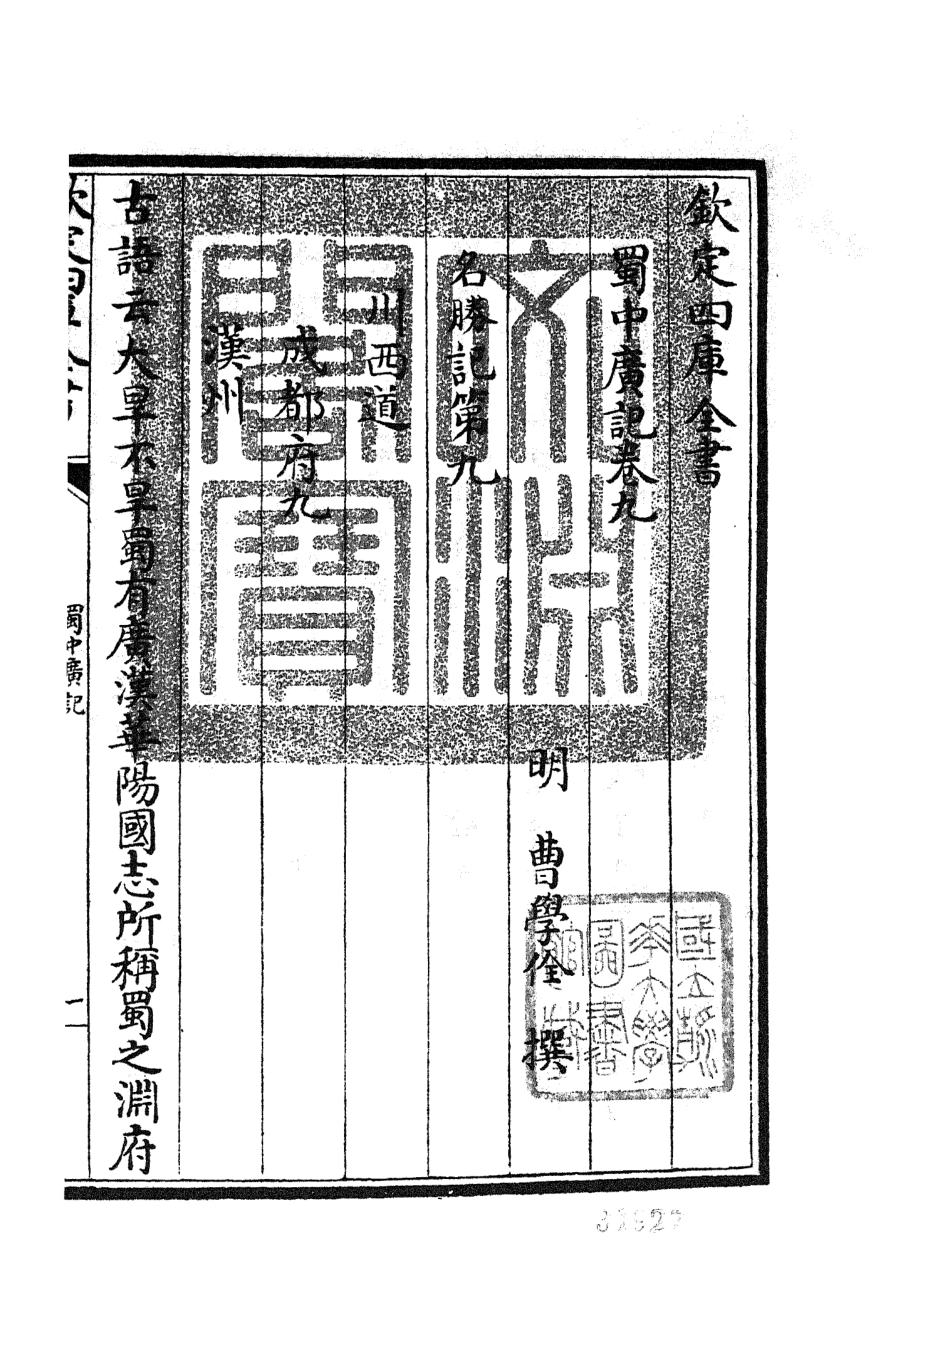 欽定四庫全書
蜀中廣記卷九
明 曹學佺 撰
名勝記第九
川西道
成都府九
漢州
古語云大旱不旱蜀有廣漢華陽國志所稱蜀之淵府
欽定四庫全書
蜀中廣記
一
文淵閣寶
國立清華大學圖書館藏